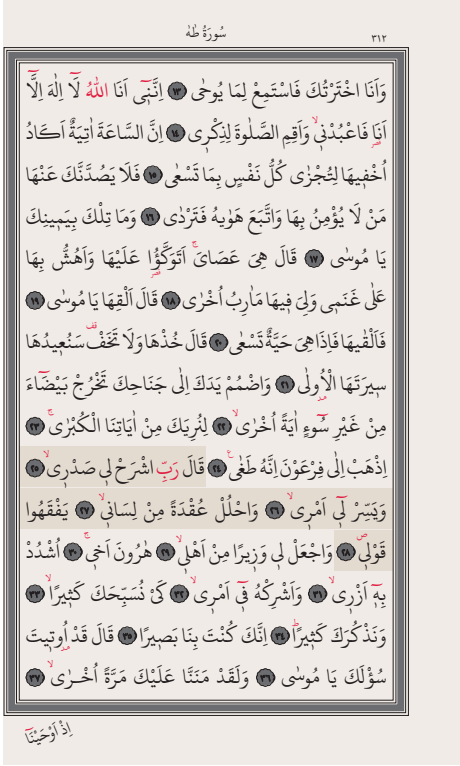 سُورَةُ طٰهٰ ٣١٢
وَاَنَا اخْتَرْتُكَ فَاسْتَمِعْ لِمَا يُوحٰى ﴿١٣﴾ اِنَّنٖٓي اَنَا اللّٰهُ لَٓا اِلٰهَ اِلَّٓا
اَنَا۬ فَاعْبُدْنٖيۙ وَاَقِمِ الصَّلٰوةَ لِذِكْرٖي ﴿١٤﴾ اِنَّ السَّاعَةَ اٰتِيَةٌ اَكَادُ
اُخْفٖيهَا لِتُجْزٰى كُلُّ نَفْسٍ بِمَا تَسْعٰى ﴿١٥﴾ فَلَا يَصُدَّنَّكَ عَنْهَا
مَنْ لَا يُؤْمِنُ بِهَا وَاتَّبَعَ هَوٰيهُ فَتَرْدٰى ﴿١٦﴾ وَمَا تِلْكَ بِيَمٖينِكَ
يَا مُوسٰى ﴿١٧﴾ قَالَ هِيَ عَصَايَۚ اَتَوَكَّؤُ۬ا عَلَيْهَا وَاَهُشُّ بِهَا
عَلٰى غَنَمٖي وَلِيَ فٖيهَا مَاٰرِبُ اُخْرٰى ﴿١٨﴾ قَالَ اَلْقِهَا يَا مُوسٰى ﴿١٩﴾
فَاَلْقٰيهَا فَاِذَا هِيَ حَيَّةٌ تَسْعٰى ﴿٢٠﴾ قَالَ خُذْهَا وَلَا تَخَفْ۠ سَنُعٖيدُهَا
سٖيرَتَهَا الْاُو۫لٰى ﴿٢١﴾ وَاضْمُمْ يَدَكَ اِلٰى جَنَاحِكَ تَخْرُجْ بَيْضَٓاءَ
مِنْ غَيْرِ سُٓوءٍ اٰيَةً اُخْرٰىۙ ﴿٢٢﴾ لِنُرِيَكَ مِنْ اٰيَاتِنَا الْكُبْرٰىۚ ﴿٢٣﴾
اِذْهَبْ اِلٰى فِرْعَوْنَ اِنَّهُ طَغٰى۟ ﴿٢٤﴾ قَالَ رَبِّ اشْرَحْ لٖي صَدْرٖيۙ ﴿٢٥﴾
وَيَسِّرْ لٖٓي اَمْرٖيۙ ﴿٢٦﴾ وَاحْلُلْ عُقْدَةً مِنْ لِسَانٖيۙ ﴿٢٧﴾ يَفْقَهُوا
قَوْلٖيࣕ ﴿٢٨﴾ وَاجْعَلْ لٖي وَزٖيرًا مِنْ اَهْلٖيۙ ﴿٢٩﴾ هٰرُونَ اَخٖيۚ ﴿٣٠﴾ اُشْدُدْ
بِهٖٓ اَزْرٖيۙ ﴿٣١﴾ وَاَشْرِكْهُ فٖٓي اَمْرٖيۙ ﴿٣٢﴾ كَيْ نُسَبِّحَكَ كَثٖيرًاۙ ﴿٣٣﴾
وَنَذْكُرَكَ كَثٖيرًاۜ ﴿٣٤﴾ اِنَّكَ كُنْتَ بِنَا بَصٖيرًا ﴿٣٥﴾ قَالَ قَدْ اُو۫تٖيتَ
سُؤْلَكَ يَا مُوسٰى ﴿٣٦﴾ وَلَقَدْ مَنَنَّا عَلَيْكَ مَرَّةً اُخْرٰىۙ ﴿٣٧﴾
اِذْ اَوْحَيْنَٓا